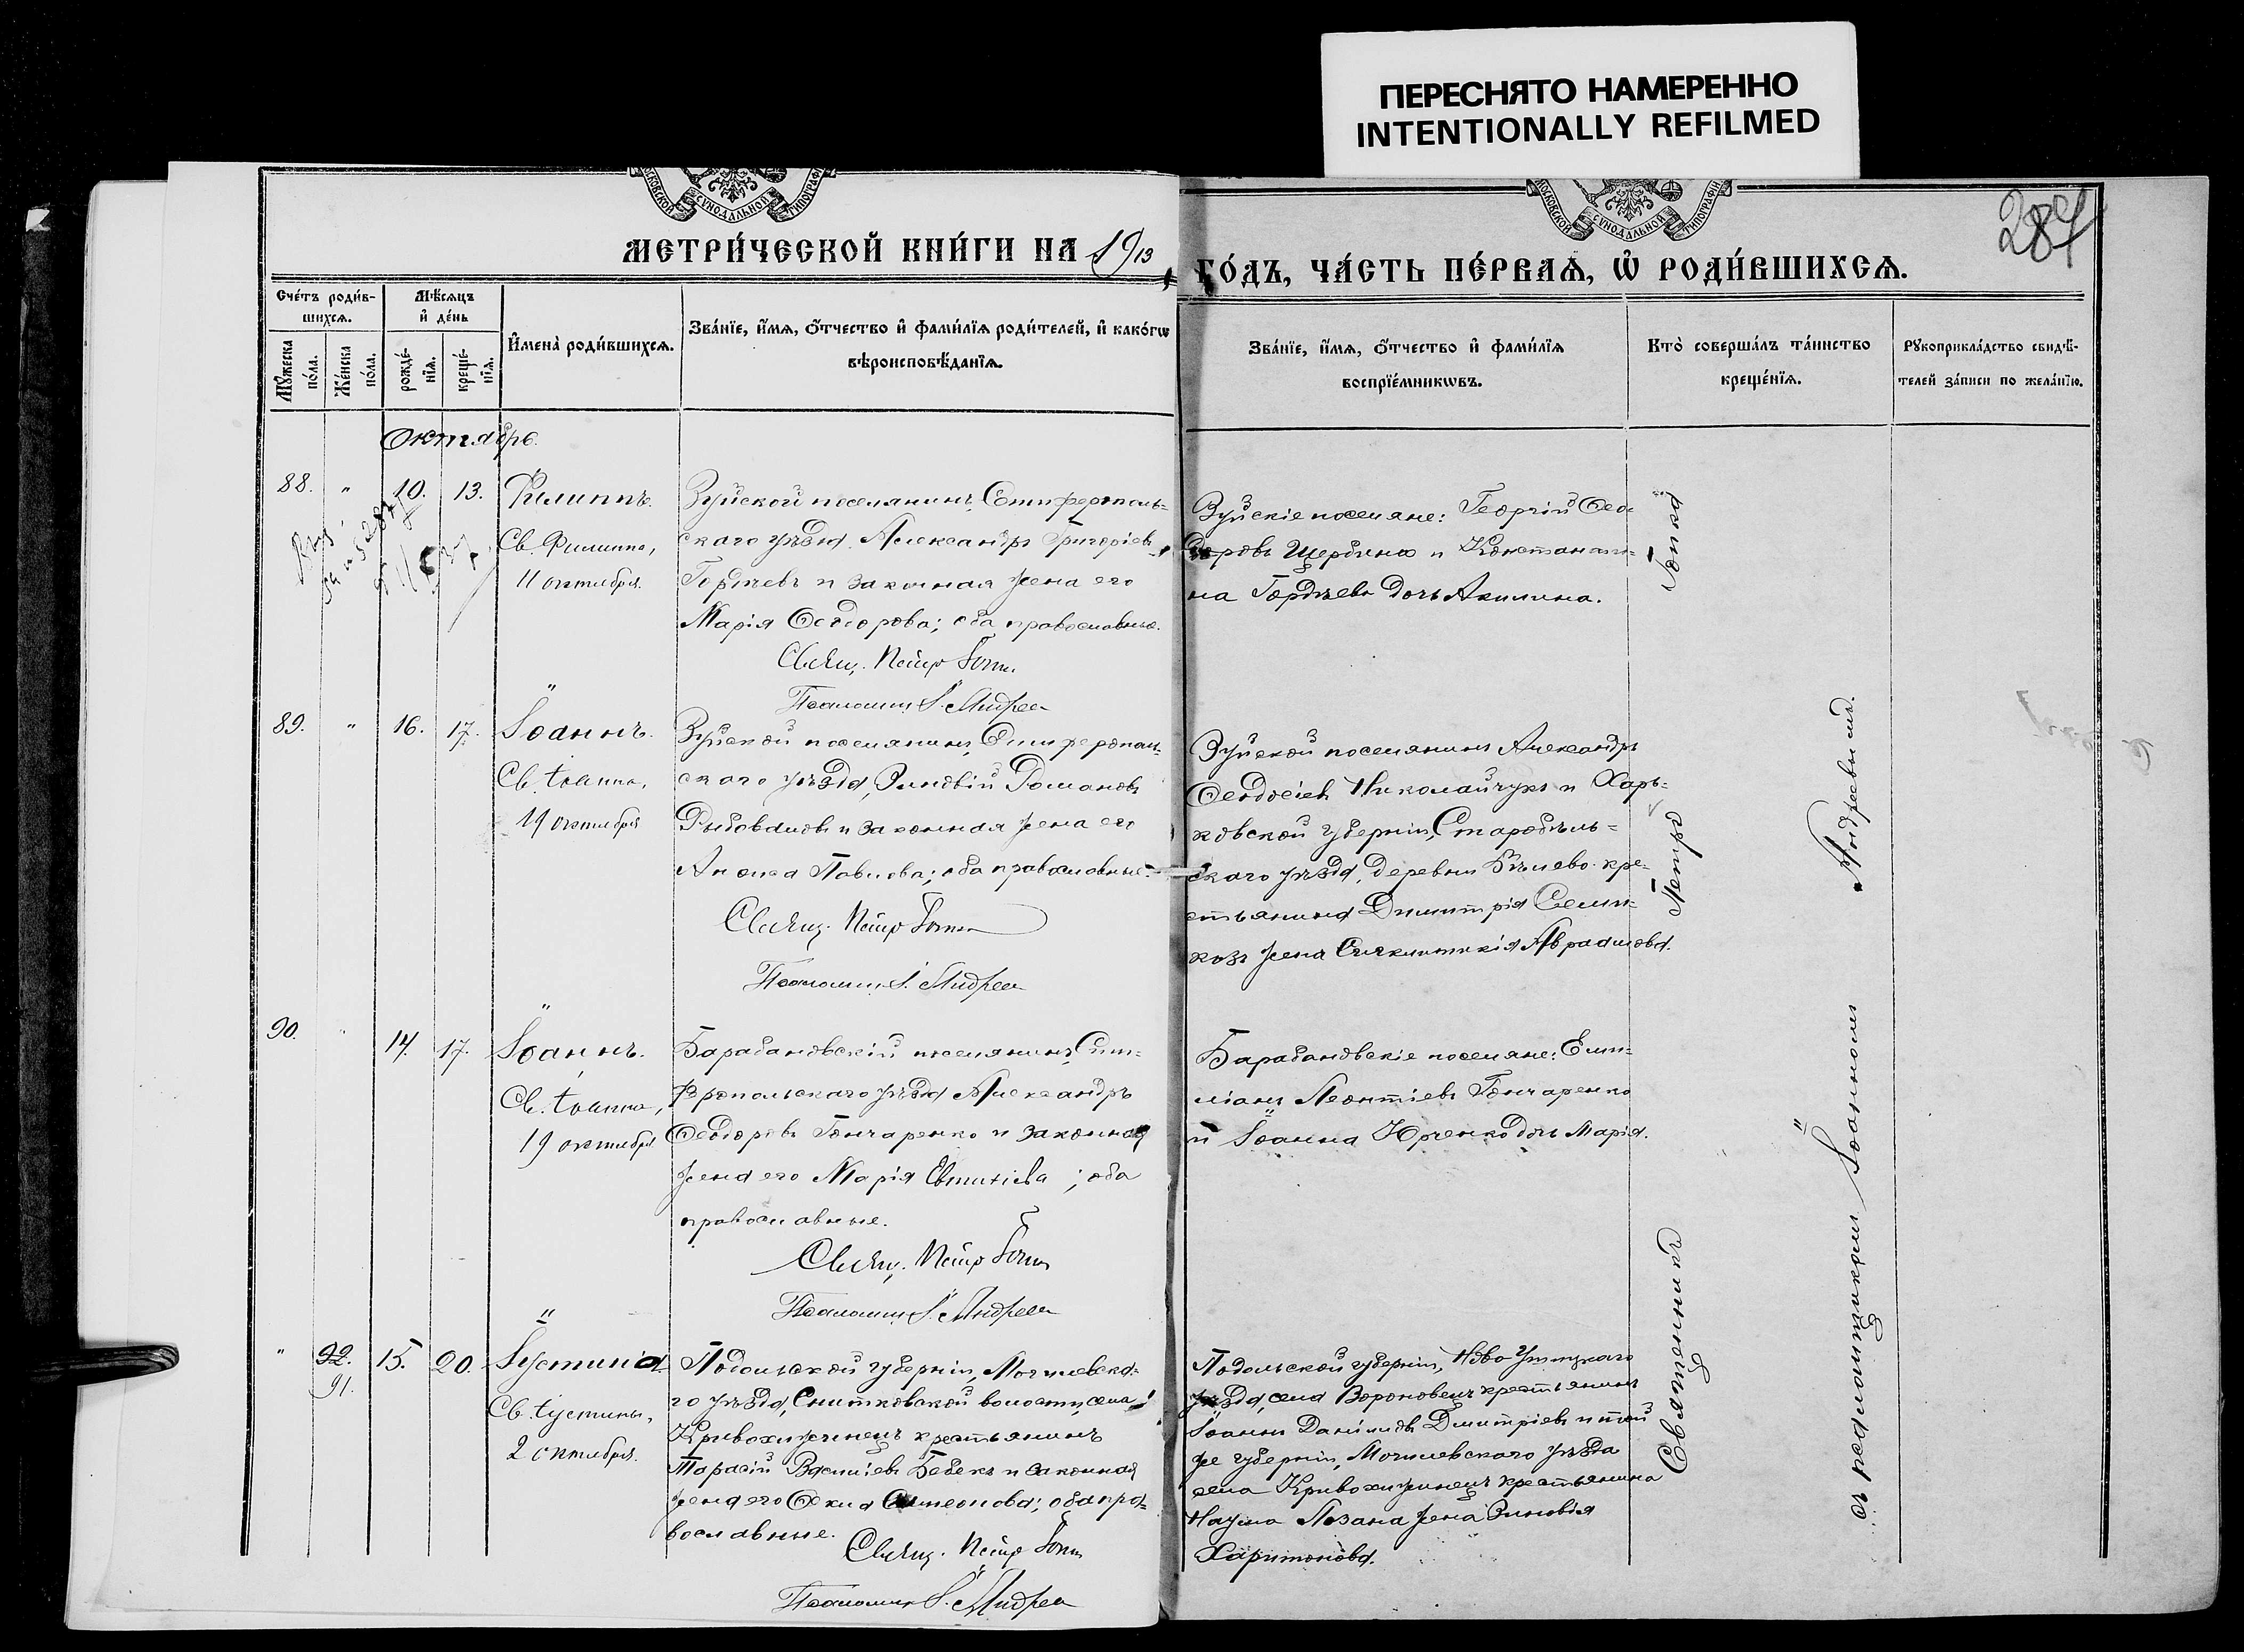 ПЕРЕСНЯТО НАМЕРЕННО
INTENTIONALLY REFILMED
МОСКОВСКОЙ СУНОДАЛЬНОЙ ТИПОГРАФІИ
МОСКОВСКОЙ СУНОДАЛЬНОЙ ТИПОГРАФІИ
284
МЕТРИ́ЧЕСКОЙ КНИ́ГИ НА 1913
ГО́ДЪ, ЧА́СТЬ ПЕ́РВАѦ, Ѡ҆ РОДИ́ВШИХСѦ.
Сче́тъ роди́в-
шихсѧ.
Мѣ́сѧцъ
и҆ де́нь
Мꙋ́жеска
по́ла.
Же́нска
по́ла.
рожде́-
нїѧ.
креще́-
нїѧ.
И҆мена̀ роди́вшихсѧ.
Зва́нїе, и҆́мѧ, ѻ҆́тчество и҆ фами́лїѧ роди́телей, и҆ како́гѡ
вѣроисповѣ́данїѧ.
Зва́нїе, и҆́мѧ, ѻ҆́тчество и҆ фами́лїѧ
воспрїе́мникѡвъ.
Кто̀ соверша́лъ та́инство
креще́нїѧ.
Рꙋкоприкла́дство свидѣ́-
телей за́писи по жела́нїю.
Октябрь.
88. " 10. 13. Филиппъ.
Св. Филиппа,
11 октября.
Зуйской поселянинъ, Симферополь-
скаго уѣзда, Александръ Григоріевъ
Гордѣевъ и законная жена его
Марія Ѳеодорова; оба православные.
Свящ. Петръ
Псаломщ. І. Андрее
Зуйскіе поселяне: Георгій Ѳео-
доровъ Щербина и Константи-
на Гордѣева дочь Акилина.
89. " 16. 17. Іоаннъ.
Св. Іоанна,
19 октября
Зуйской поселянинъ, Симферополь-
скаго уѣзда, Зиновій Романовъ
и законная жена его
Павлова; оба православные.
Свящ. Петръ
Псаломщ. І. Андрее
Зуйской поселянинъ Александръ
Ѳеодосіевъ Николайчукъ и Харь-
ковской губерніи, Старобѣль-
скаго уѣзда, деревни Бѣлево кре-
стьянина Димитрія
жена Аврамова.
90. " 14. 17. Іоаннъ.
Св. Іоанна,
19 октября
Барабановскій поселянинъ, Сим-
феропольскаго уѣзда Александръ
Ѳеодоровъ Гончаренко и законная
жена его Марія Евтихіева; оба
православные.
Свящ. Петръ
Псаломщ. І. Андрее
Барабановскіе поселяне: Еми-
ліанъ Леонтіевъ Гончаренко
и Іоанна Юрченко дочь Марія.
" 92. 15. 20. Іустинія
91.
Св. Іустины,
2 октября.
Подольской губерніи, Могилевска-
го уѣзда, Снитковской волости, села
Кривохижинецъ крестьянинъ
Тарасій Василіевъ Бебекъ и законная
жена его Ѳекла Симеонова; оба пра-
вославные.
Свящ. Петръ
Псаломщ. І. Андрее
Подольской губерніи, Ново-Ушицкаго
уѣзда, села Вороновецъ крестьянинъ
Іоаннъ Даніиловъ Димитріевъ и той
же губерніи, Могилевскаго уѣзда
села Кривохижинецъ крестьянина
Наума Лозана жена Зиновія
Харитонова.
Священникъ Петръ
съ псаломщикомъ Іоанномъ